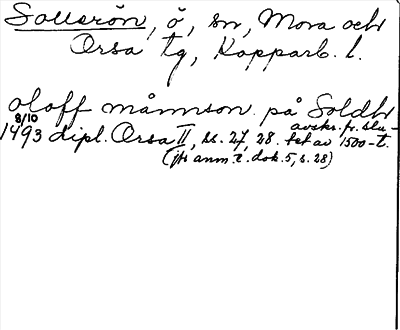 Sollerön, ö, sn, Mora och
Orsa tg, Kopparb. l.
oloff månnson på Soldhr
8/10 1493 dipl. Orsa II, ss. 27, 28. avskr. fr. slu-
tet av 1500-t.
(jfr anm. t. dok. 5, s. 28)